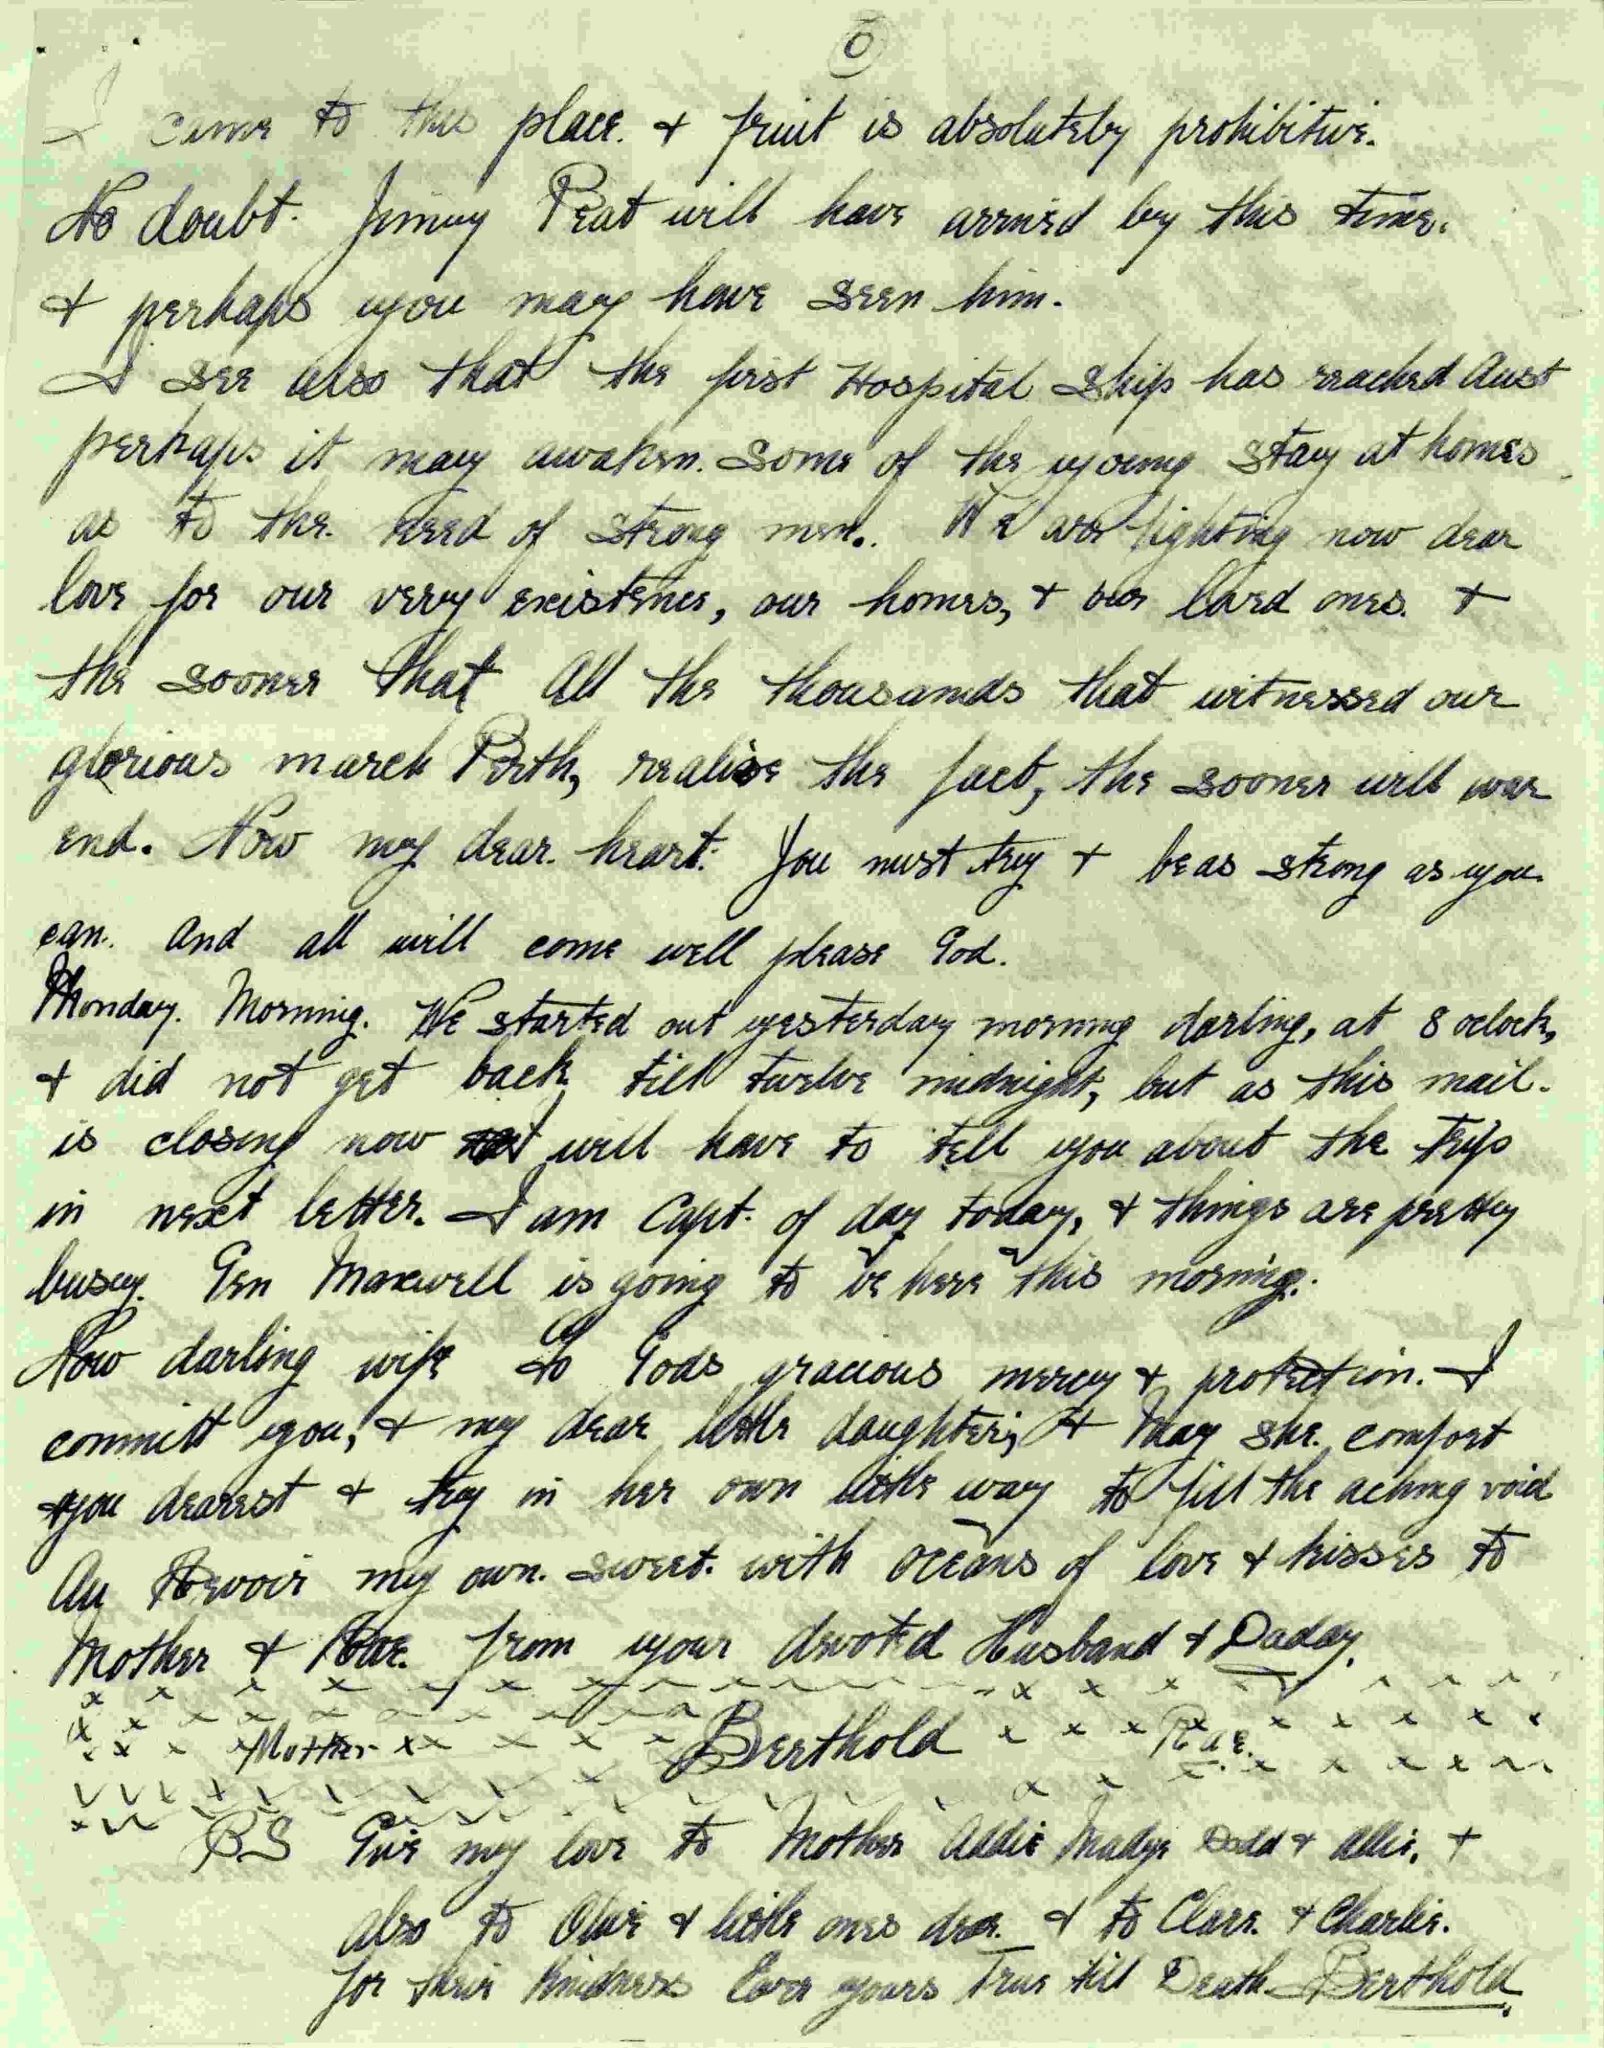 6
I came to this place. & fruit is absolutely prohibitive.
No doubt. Jimmy Peat will have arrived by this time.
& perhaps you may have seen him.
I see also that the first Hospital Ship has reached Aust
perhaps it may awaken. some of the young stay at homes
as to the. need of strong men.. We are fighting now dear
love for our very existence, our homes, & our loved ones. &
the sooner that All the thousands that witnessed our
glorious march Perth, realise the fact, the sooner will war
end. Now my dear. heart. You must try & be as strong as you
can. And all will come well please God.
Monday. Morning. We started out yesterday morning darling, at 8 oclock,
& did not get back till twelve midnight, but as this mail.
is closing now I will have to tell you about the trip
in next letter. I am Capt. of day today, & things are pretty
busy. Gen Maxwell is going to be here this morning.
Now darling wife To Gods gracious mercy & protection. I
committ you, & my dear little daughter, & May she. comfort
you dearest & try in her own little way to fill the aching void
Au Revoir my own. sweet. with oceans of love & kisses to
Mother & Rae. from your devoted Husband & Daday.
x x x x x x x x x x x x
Mother Berthold Rae.
x x x x x x x x x x x x
PS Give my love to Mother Addie Madge Dodd & Allie, &
also to Olive & little ones dear. & to Clare. & Charlie.
for their kindness Ever yours True till Death Berthold.